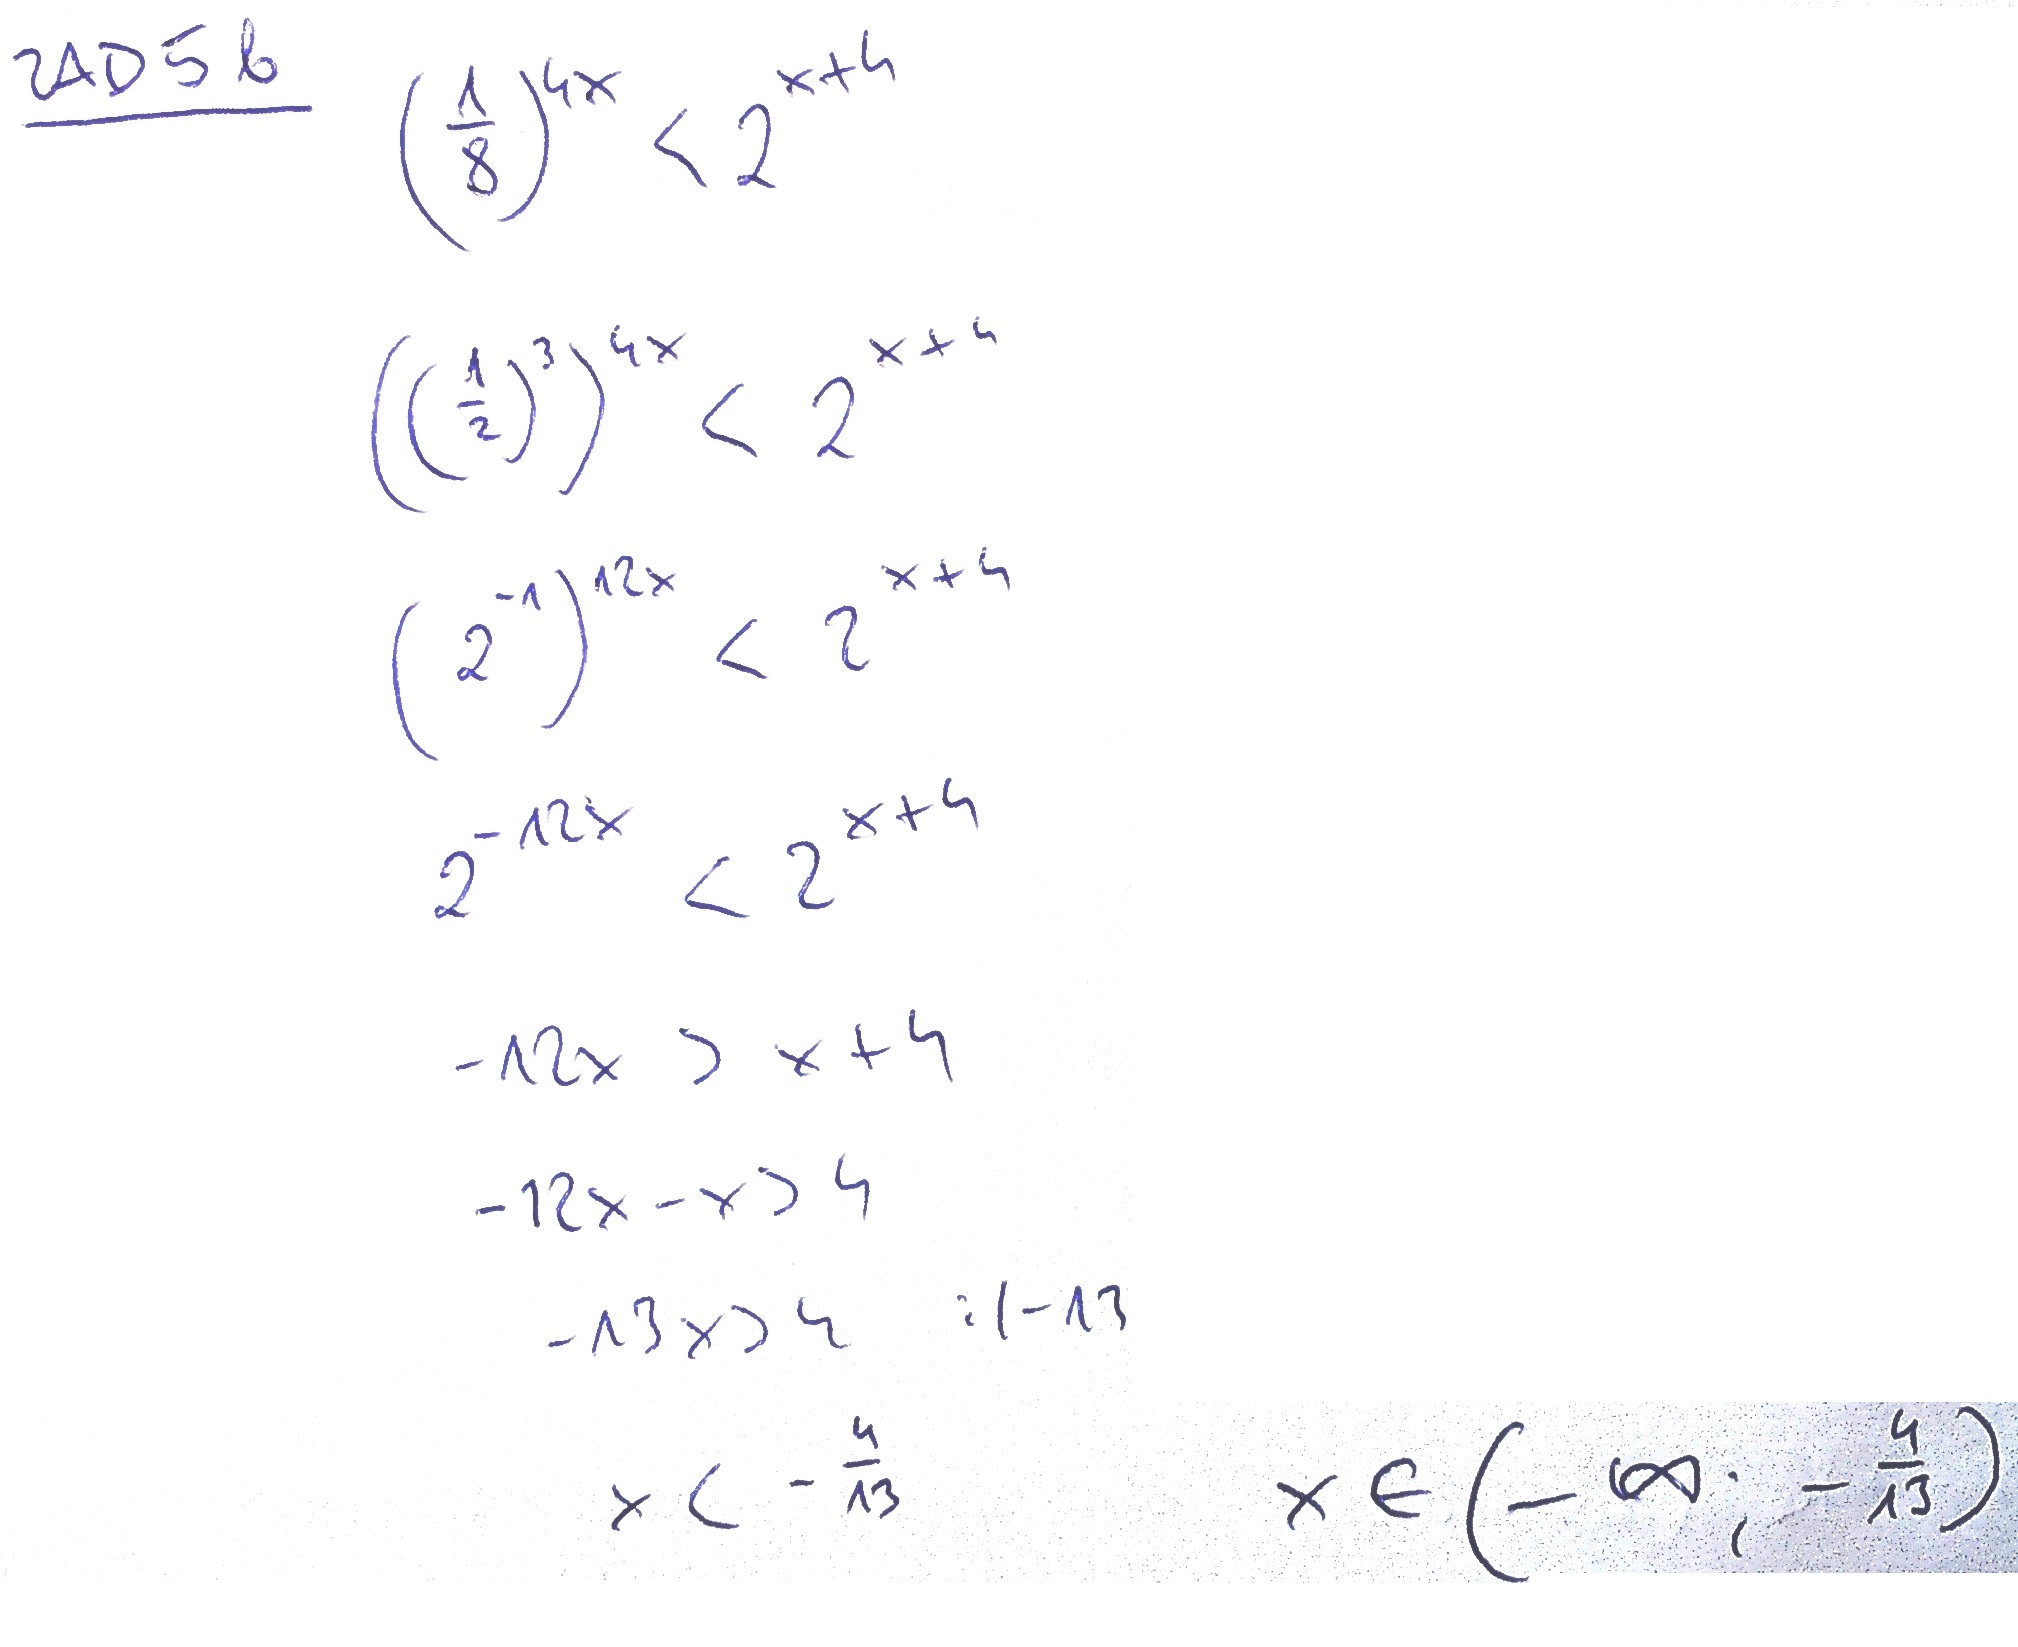 ZAD 5 b
(1/8)^4x < 2^x+4
((1/2)^3)^4x < 2^x+4
(2^-1)^12x < 2^x+4
2^-12x < 2^x+4
-12x > x+4
-12x-x>4
-13x>4 :(-13
x< -4/13 x∈(-∞; -4/13)